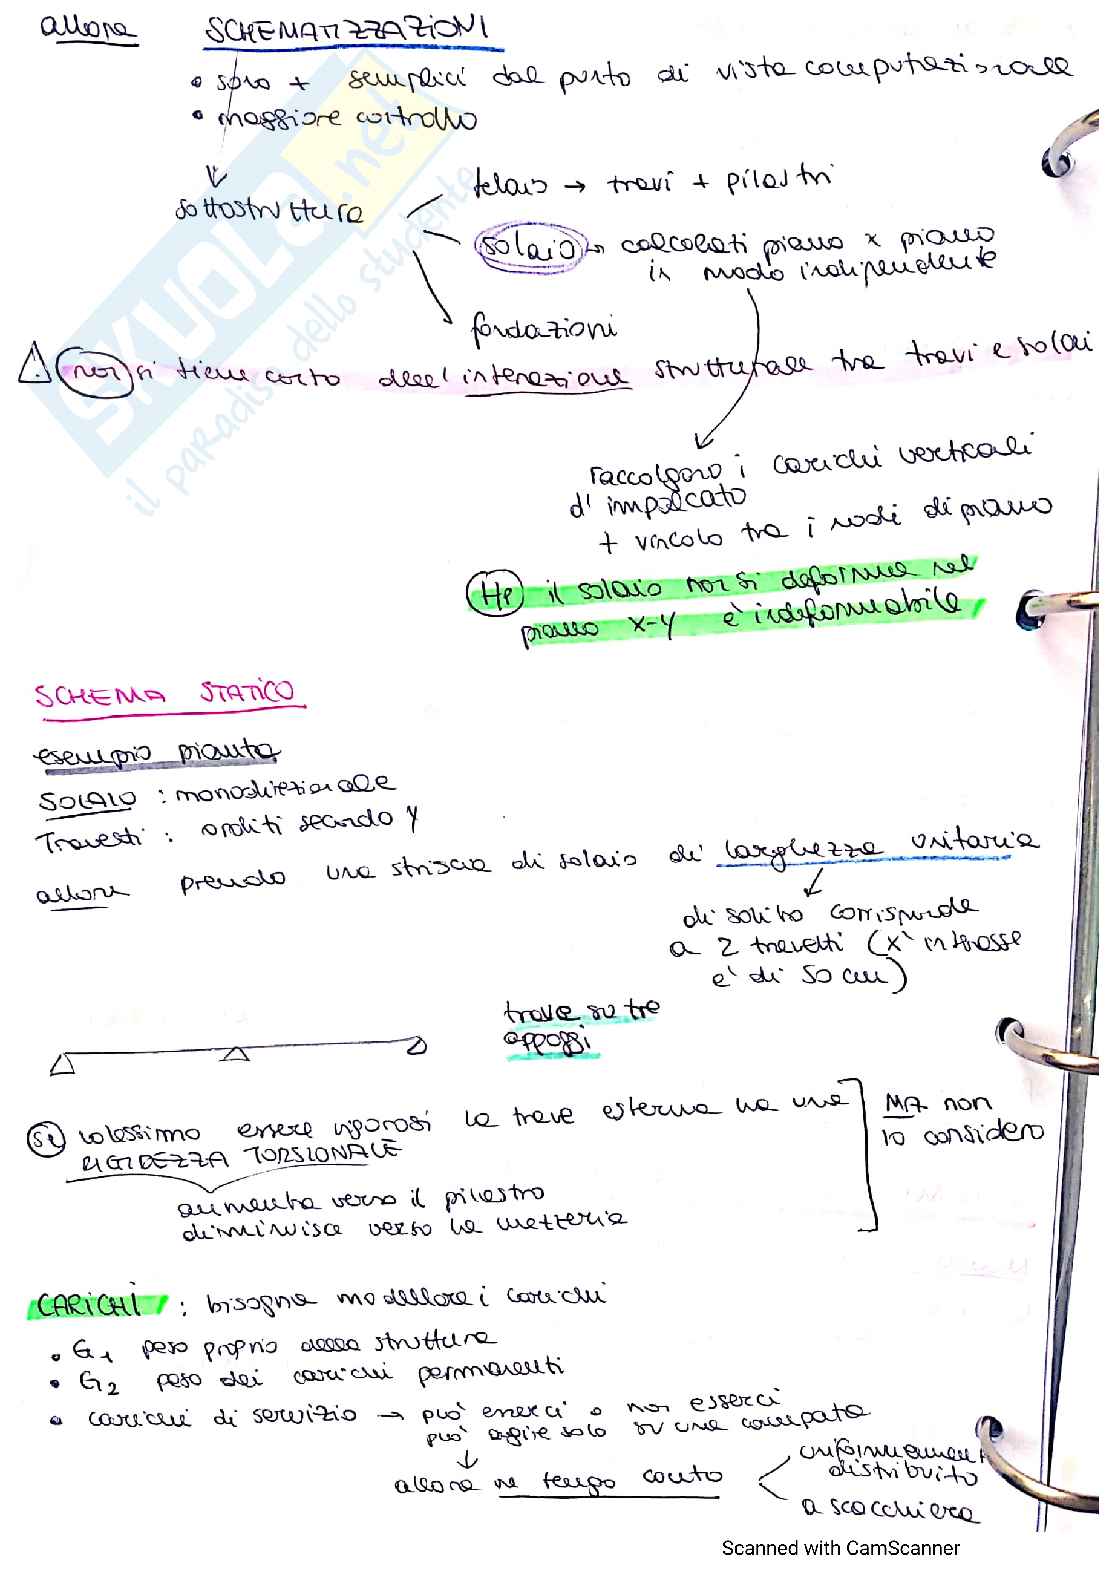 allora SCHEMATIZZAZIONI
• sono + semplici dal punto di vista computazionale
• maggiore controllo
sottostrutture
telaio → travi + pilastri
solaio → calcolati piano x piano
in modo indipendente
fondazioni
⚠ non si tiene conto dell'interazione strutturale tra travi e solai
raccolgono i carichi verticali
d'impalcato
+ vincolo tra i nodi di piano
Hp il solaio non si deforma nel
piano x-y è indeformabile
SCHEMA STATICO
esempio pianta
SOLAIO : monodirezionale
Travetti : orditi secondo y
allora prendo una striscia di solaio di larghezza unitaria
di solito corrisponde
a 2 travetti (x' interasse
e' di 50 cm)
trave su tre
appoggi
se volessimo essere rigorosi la trave esterna ha una
RIGIDEZZA TORSIONALE
MA non
lo considero
aumenta verso il pilastro
diminuisce verso la mezzeria
CARICHI : bisogna modellare i carichi
• G1 peso proprio della struttura
• G2 peso dei carichi permanenti
• carichi di servizio → può esserci o non esserci
può agire solo su una campata
allora ne tengo conto
uniformement
distribuito
a scacchiera
SKUOLA.net
il paradiso dello studente
Scanned with CamScanner